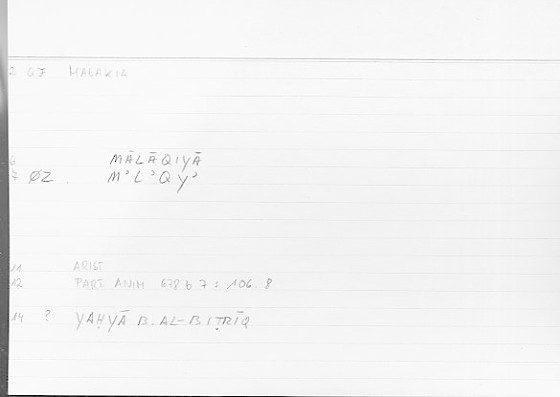 2 G7 MALAKIA
6 MĀLĀQIYĀ
7 ØZ. MʾLʾQYʾ
11 ARIST
12 PART ANIM 678 b 7 : 106.8
14 ? YAḤYĀ B. AL-BIṬRĪQ